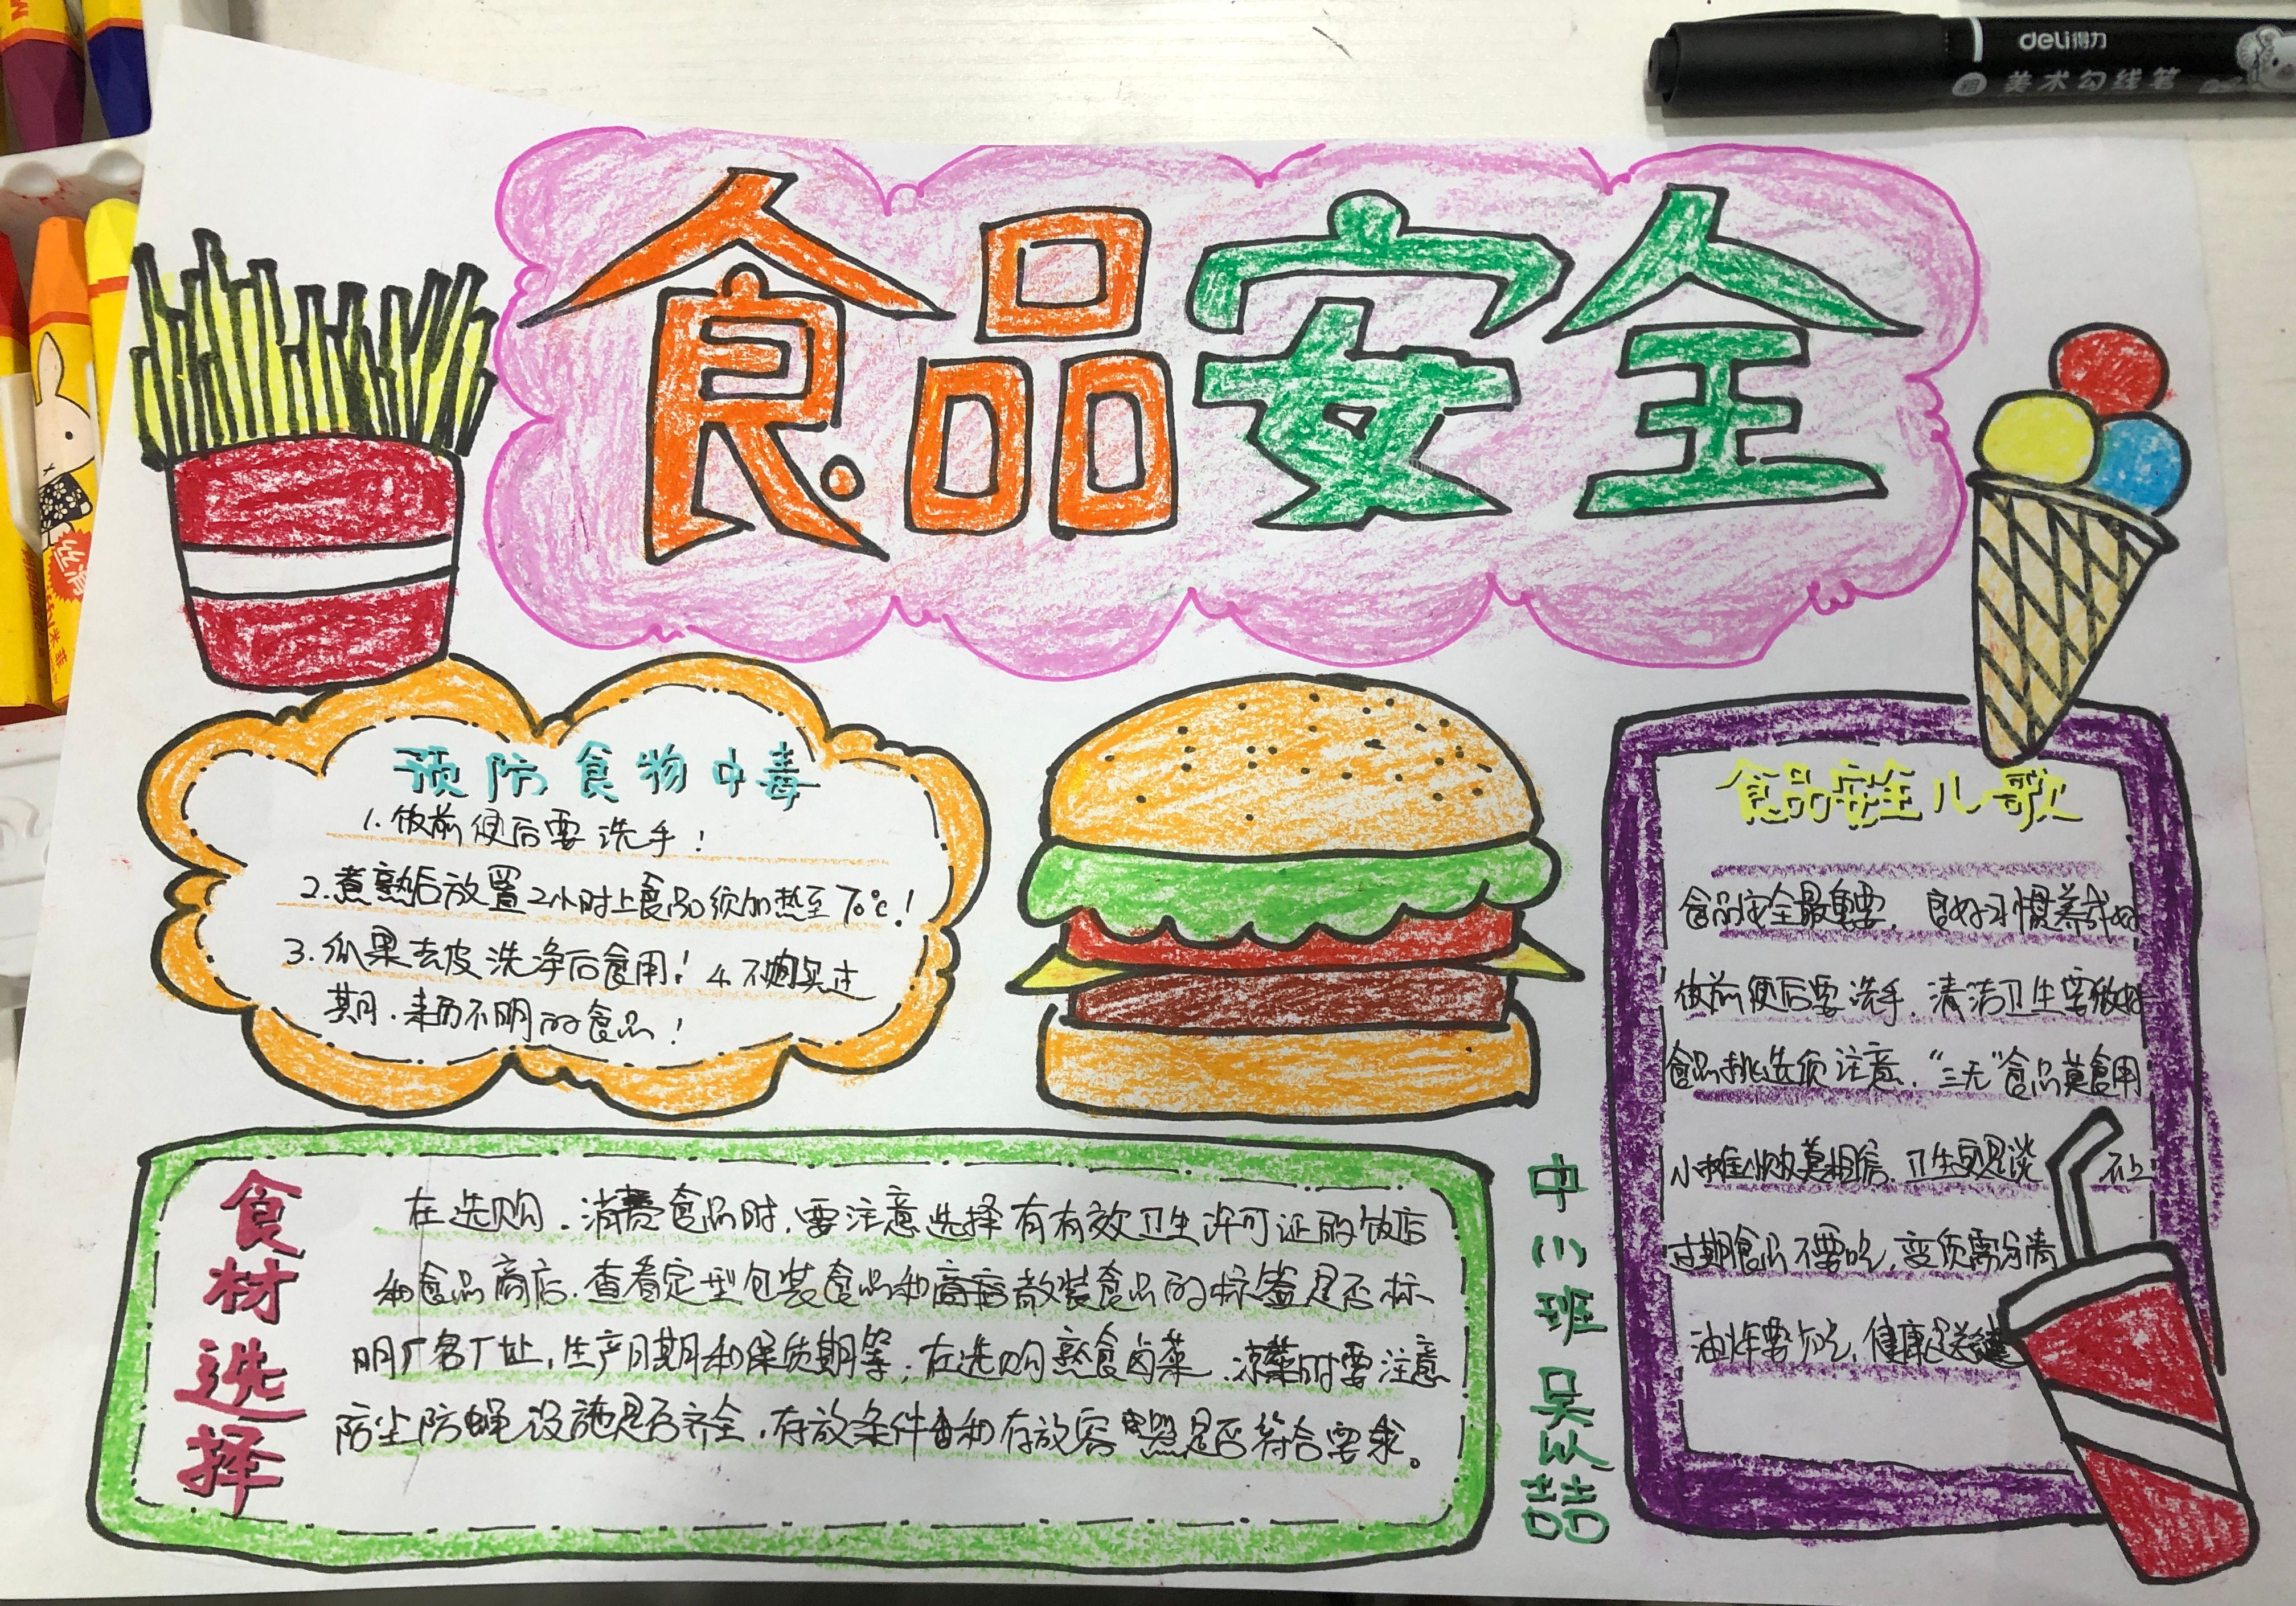 deli得力
美术勾线笔
食品安全
预防食物中毒
1.做前便后要洗手!
2.煮熟后放置2小时上食品须加热至70℃!
3.瓜果去皮洗净后食用!4.不购买过
期.来历不明的食品!
食品安全儿歌
食品安全最重要,良好习惯养成好
做前便后要洗手.清洁卫生要做好
食品挑选须注意."三无"食品莫食用
小摊小贩莫相信.卫生更是谈不上
过期食品不要吃,变质需分清
油炸要少吃,健康
食材选择
在选购.消费食品时,要注意选择有有效卫生许可证的饭店
和食品商店.查看定型包装食品和商店散装食品的标签是否标
明厂名厂址,生产日期和保质期等;在选购熟食卤菜.凉菜时要注意
防尘防蝇设施是否齐全.存放条件和存放容器是否符合要求。
中三班 梁皓喆
丝滑